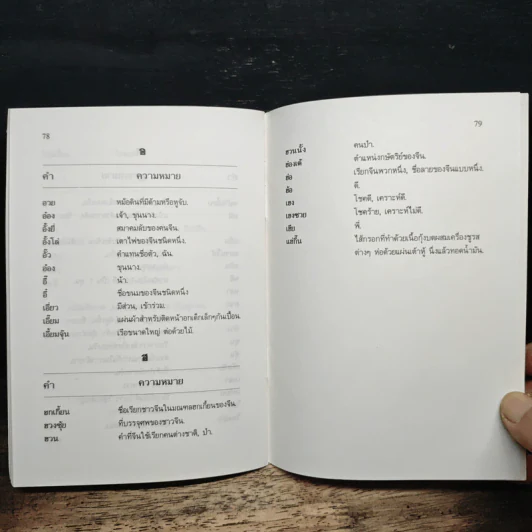 78
อ
คำ ความหมาย
อวย หม้อดินที่มีด้ามหรือหูจับ.
อ๋อง เจ้า, ขุนนาง.
อั้งยี่ สมาคมลับของคนจีน.
อั้งโล่ เตาไฟของจีนชนิดหนึ่ง
อั๊ว คำแทนชื่อตัว, ฉัน.
อ๋อง ขุนนาง.
อี๊ น้า.
อี๋ ชื่อขนมของจีนชนิดหนึ่ง
เอี่ยว มีส่วน, เข้าร่วม.
เอี๊ยม แผ่นผ้าสำหรับปิดหน้าอกเด็กเล็กๆกันเปื้อน
เอี้ยมจุ๊น เรือขนาดใหญ่ ต่อด้วยไม้.
ฮ
คำ ความหมาย
ฮกเกี้ยน ชื่อเรียกชาวจีนในมณฑลฮกเกี้ยนของจีน.
ฮวงซุ้ย ที่บรรจุศพของชาวจีน.
ฮวน. คำที่จีนใช้เรียกคนต่างชาติ, ป่า.
79
ฮวนนั้ง คนป่า.
ฮ่องเต้ ตำแหน่งกษัตริย์ของจีน.
ฮ่อ เรียกจีนพวกหนึ่ง, ชื่อลายของจีนแบบหนึ่ง
ฮ้อ ดี.
เฮง โชคดี, เคราะห์ดี.
เฮงซวย โชคร้าย, เคราะห์ไม่ดี.
เฮีย พี่.
แฮ่กึ๊น ไส้กรอกที่ทำด้วยเนื้อกุ้งบดผสมเครื่องชูรส
ต่างๆ ห่อด้วยแผ่นเต้าหู้ นึ่งแล้วทอดน้ำมัน.